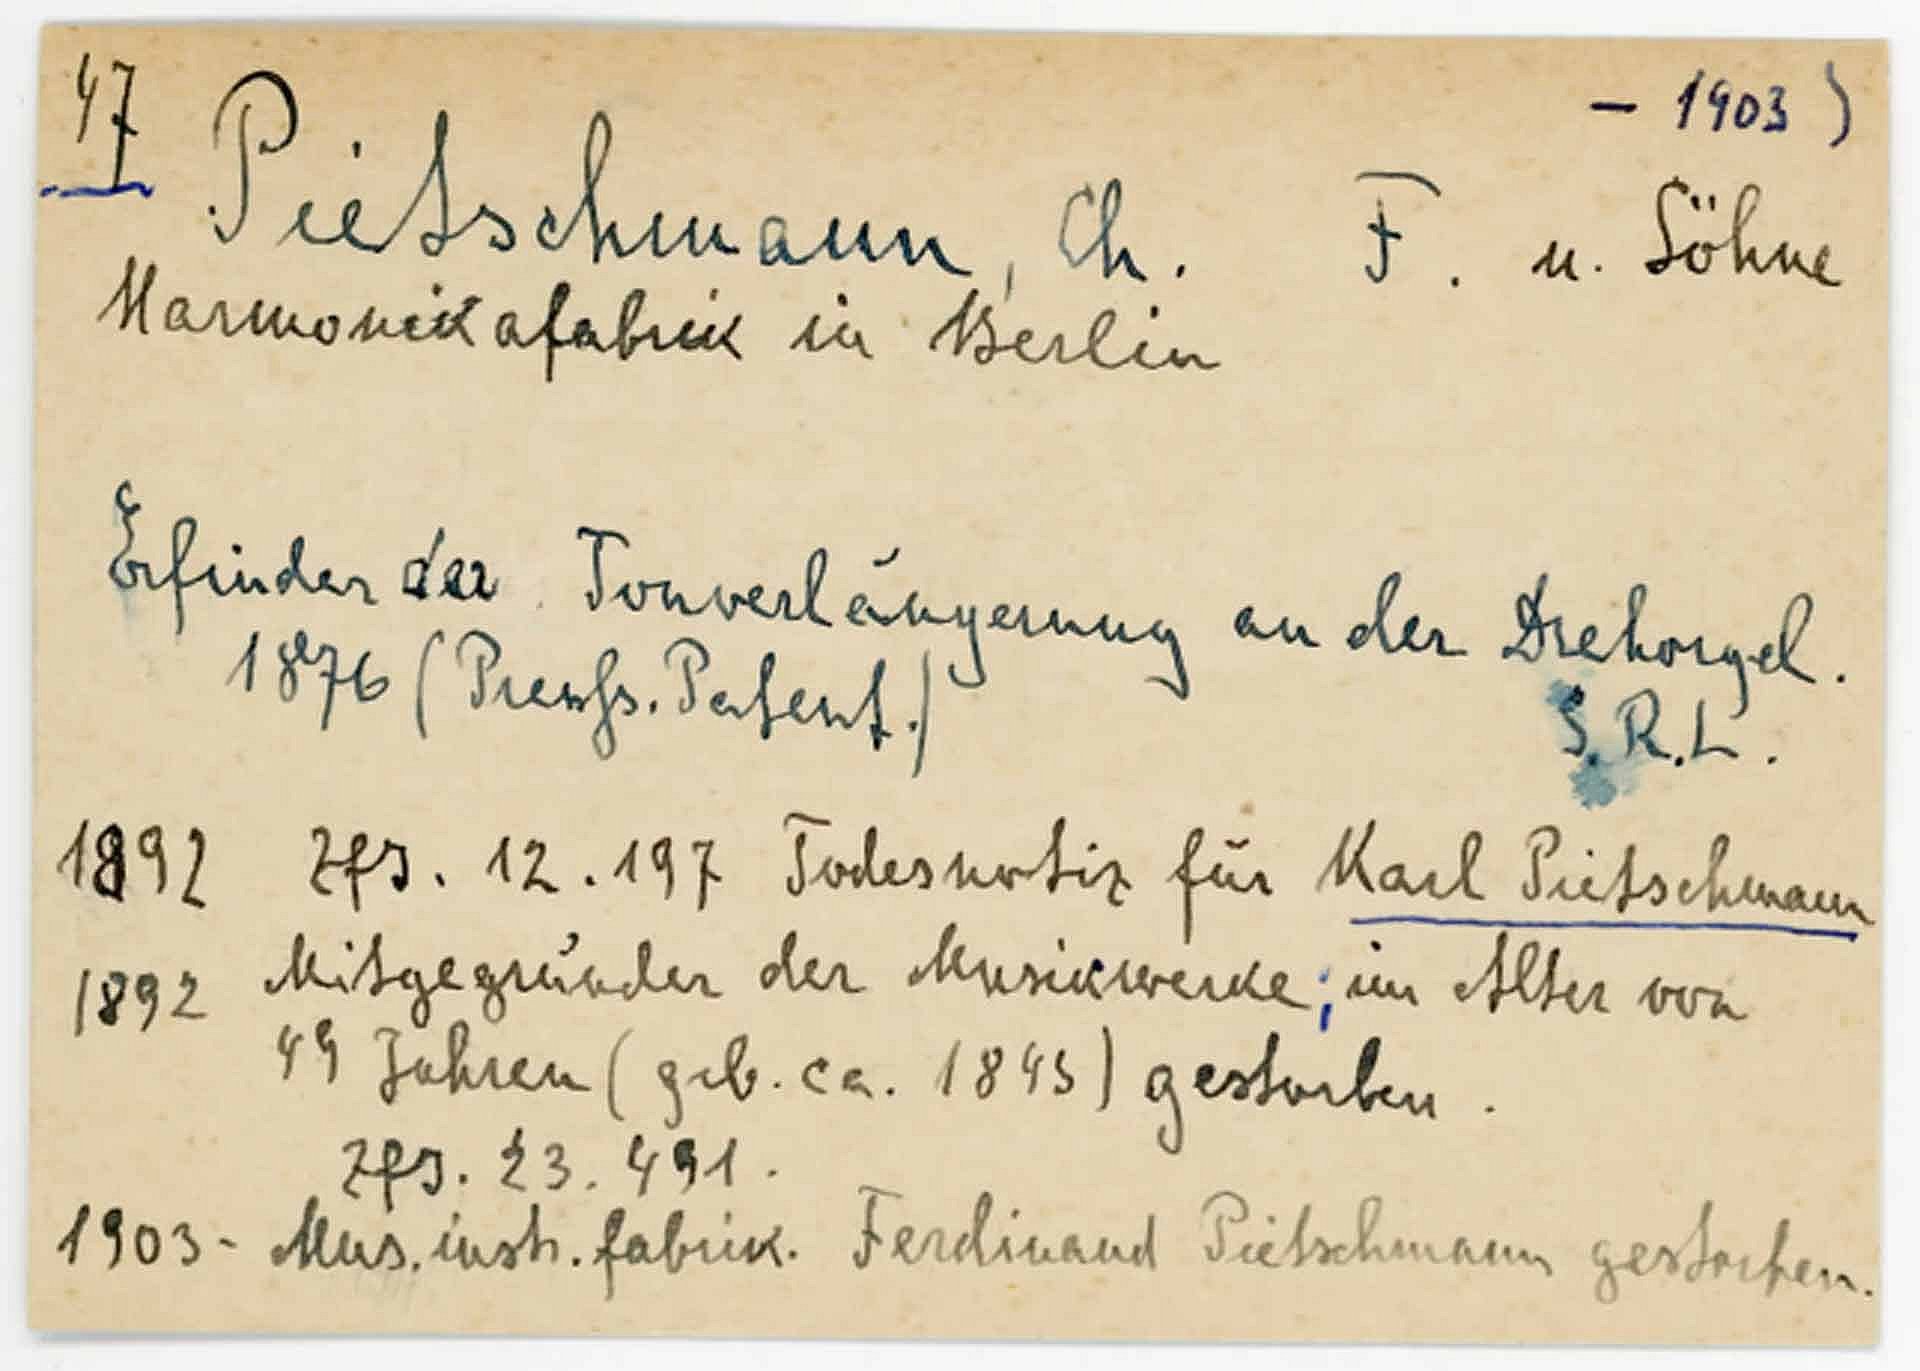 47
– 1903)
Pietschmann, Ch. F. u. Söhne
Harmonikafabrik in Berlin
Erfinder der Tonverlängerung an der Drehorgel.
1876 (Preuss. Patent.)
S.R.L.
1892 Zfs. 12.197 Todesnotiz für Karl Pietschmann
1892 Mitgegründer der Musikwerke; im Alter von
49 Jahren (geb. ca. 1843) gestorben.
Zfs. 23. 491.
1903- Mus. instr. fabrik. Ferdinand Pietschmann gestorben.